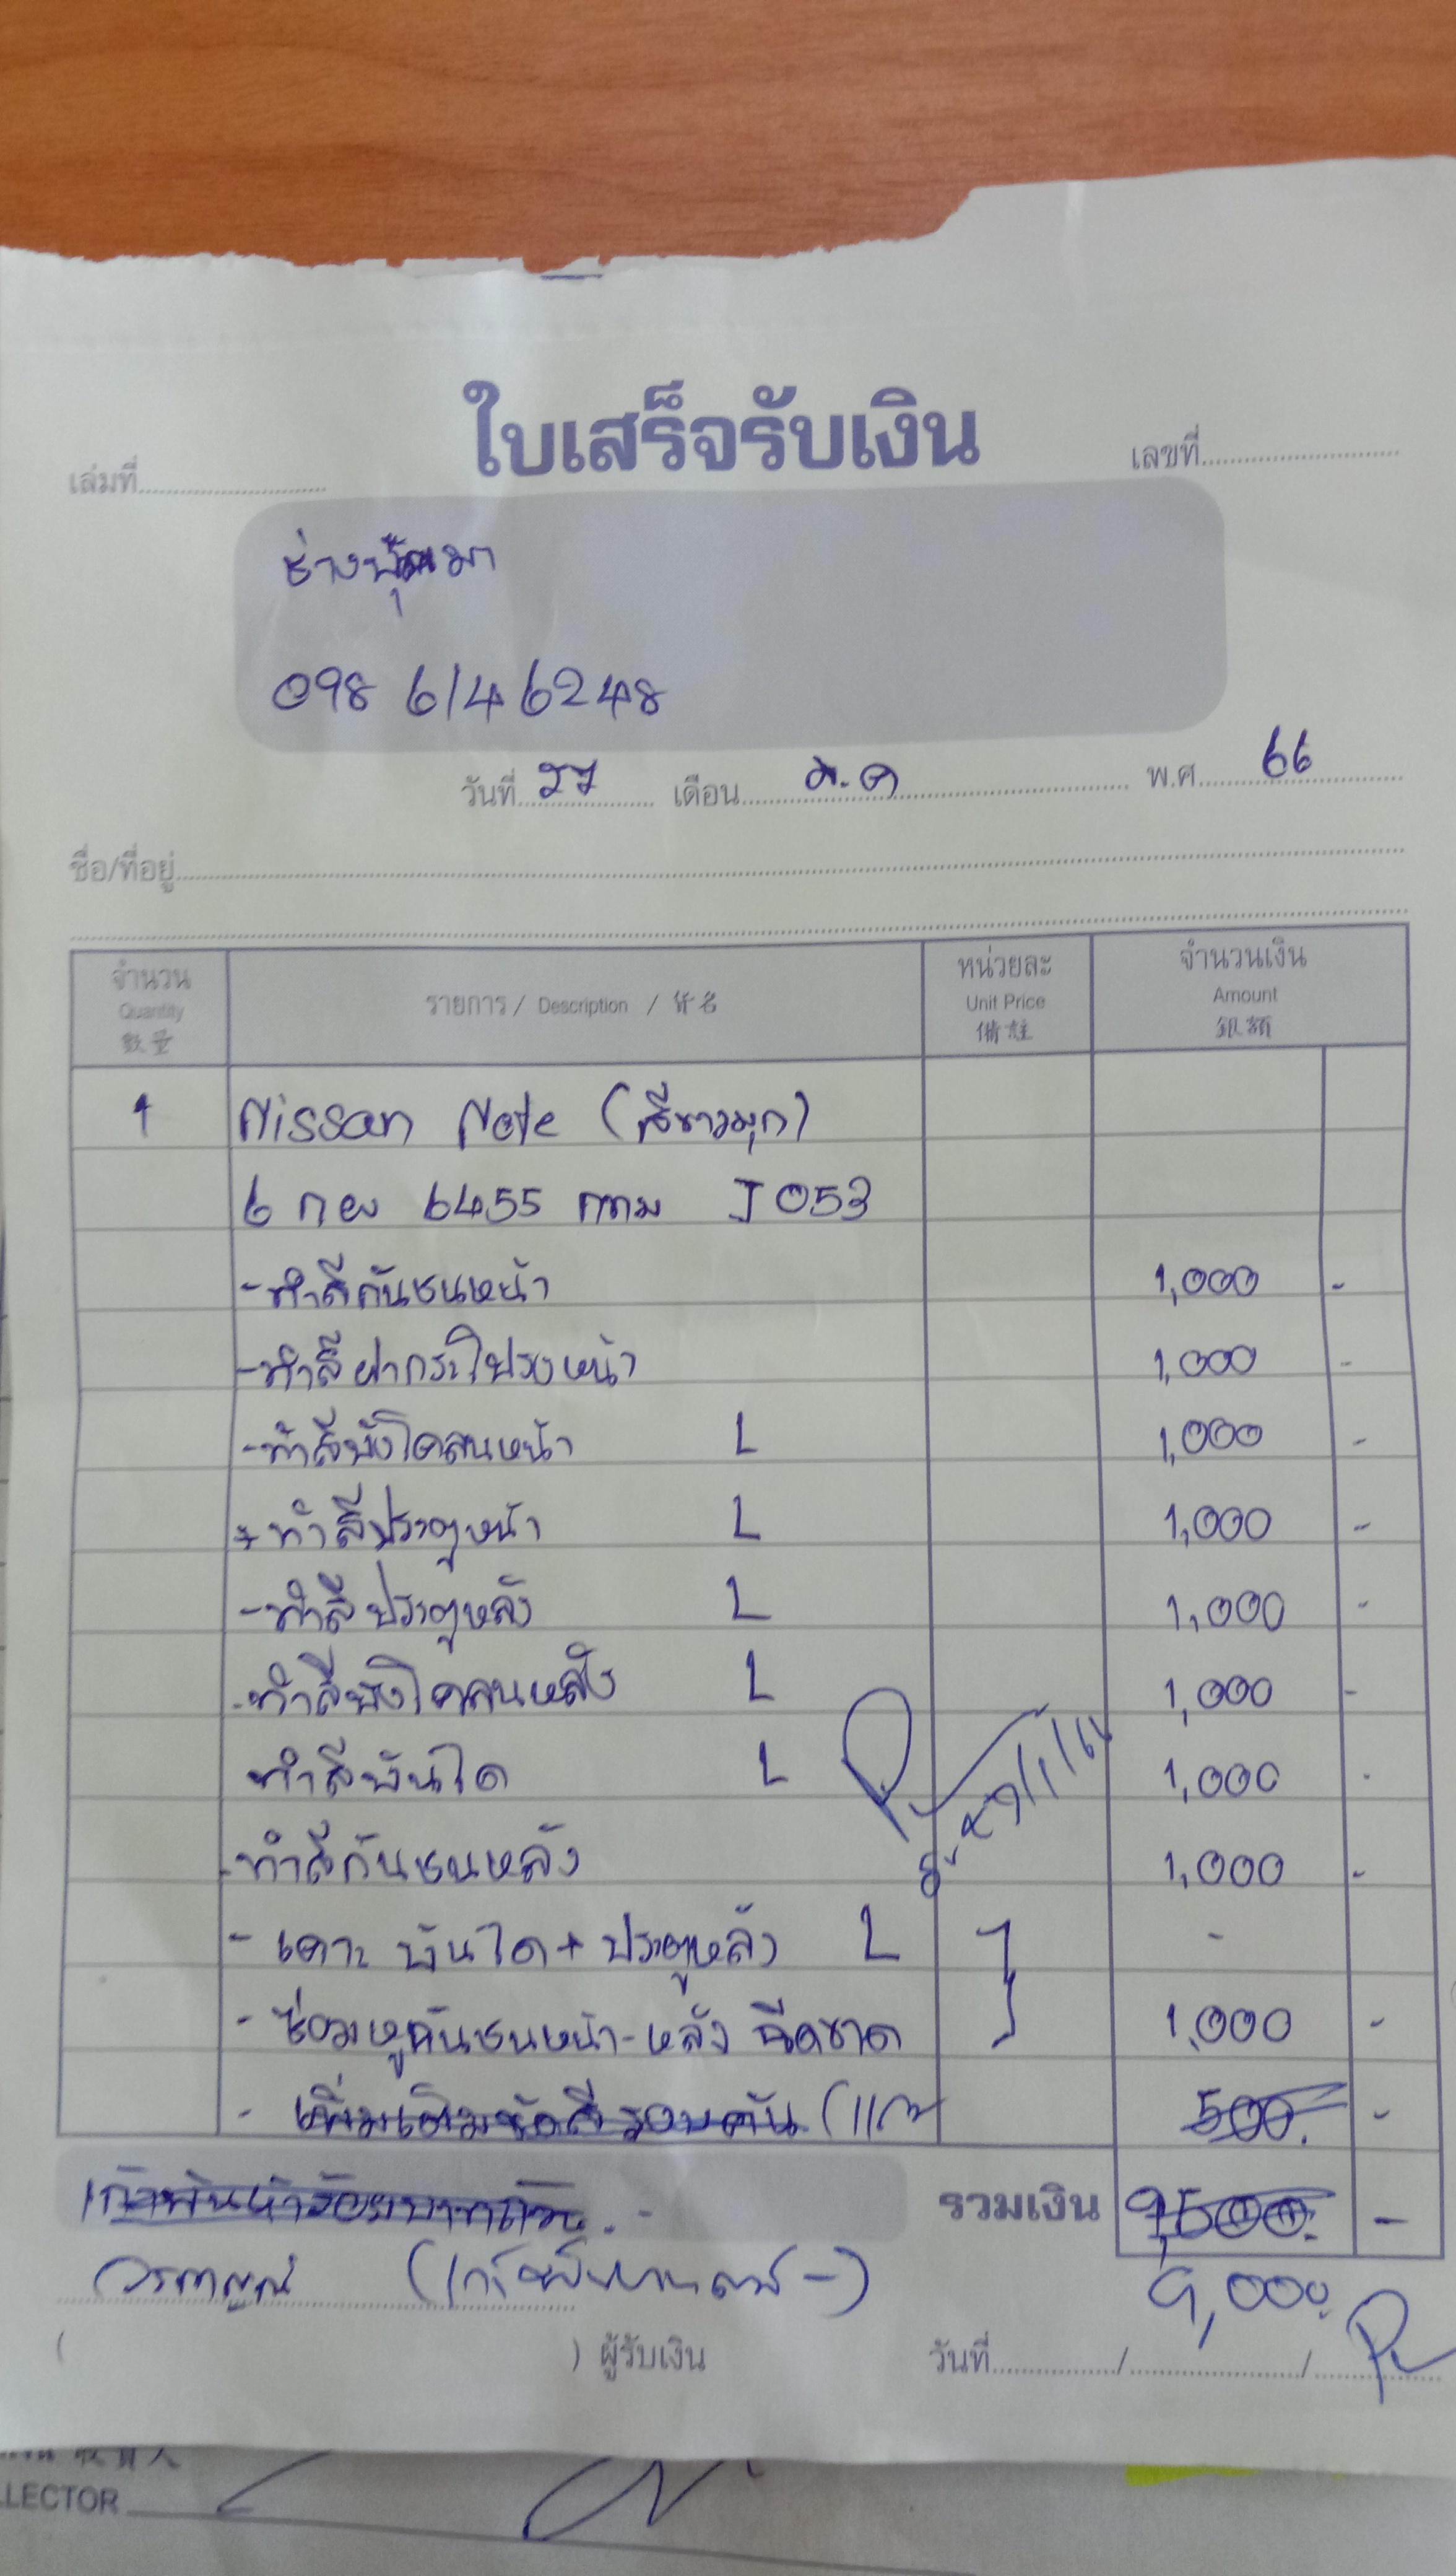 ใบเสร็จรับเงิน
เล่มที่
เลขที่
ช่าง
098 6146248
วันที่ 27 เดือน ม.ค พ.ศ. 66
ชื่อ/ที่อยู่
จำนวน Quantity 數量
รายการ / Description / 貨名
หน่วยละ Unit Price 備註
จำนวนเงิน Amount 銀額
1 Nissan Note (สีขาวมุก)
6 กย 6455 กทม J053
- ทำสีกันชนหน้า 1,000 -
- ทำสีฝากระโปรงหน้า 1,000 -
- ทำสีบังโคลนหน้า L 1,000 -
- ทำสีประตูหน้า L 1,000 -
- ทำสีประตูหลัง L 1,000 -
- ทำสีบังโคลนหลัง L 1,000 -
ทำสีบันได L 1,000 -
- ทำสีกันชนหลัง 1,000 -
- เคาะ บันได + ประตูหลัง L -
- ซ่อมหูกันชนหน้า-หลัง ฉีกขาด 1,000 -
- เพิ่มเติมขัดสีรอบคัน 500. -
เก้าพันห้าร้อยบาทถ้วน. - รวมเงิน 9,500. -
(เก้าพันบาทถ้วน -) 9,000.
( ) ผู้รับเงิน วันที่ / /
LLECTOR